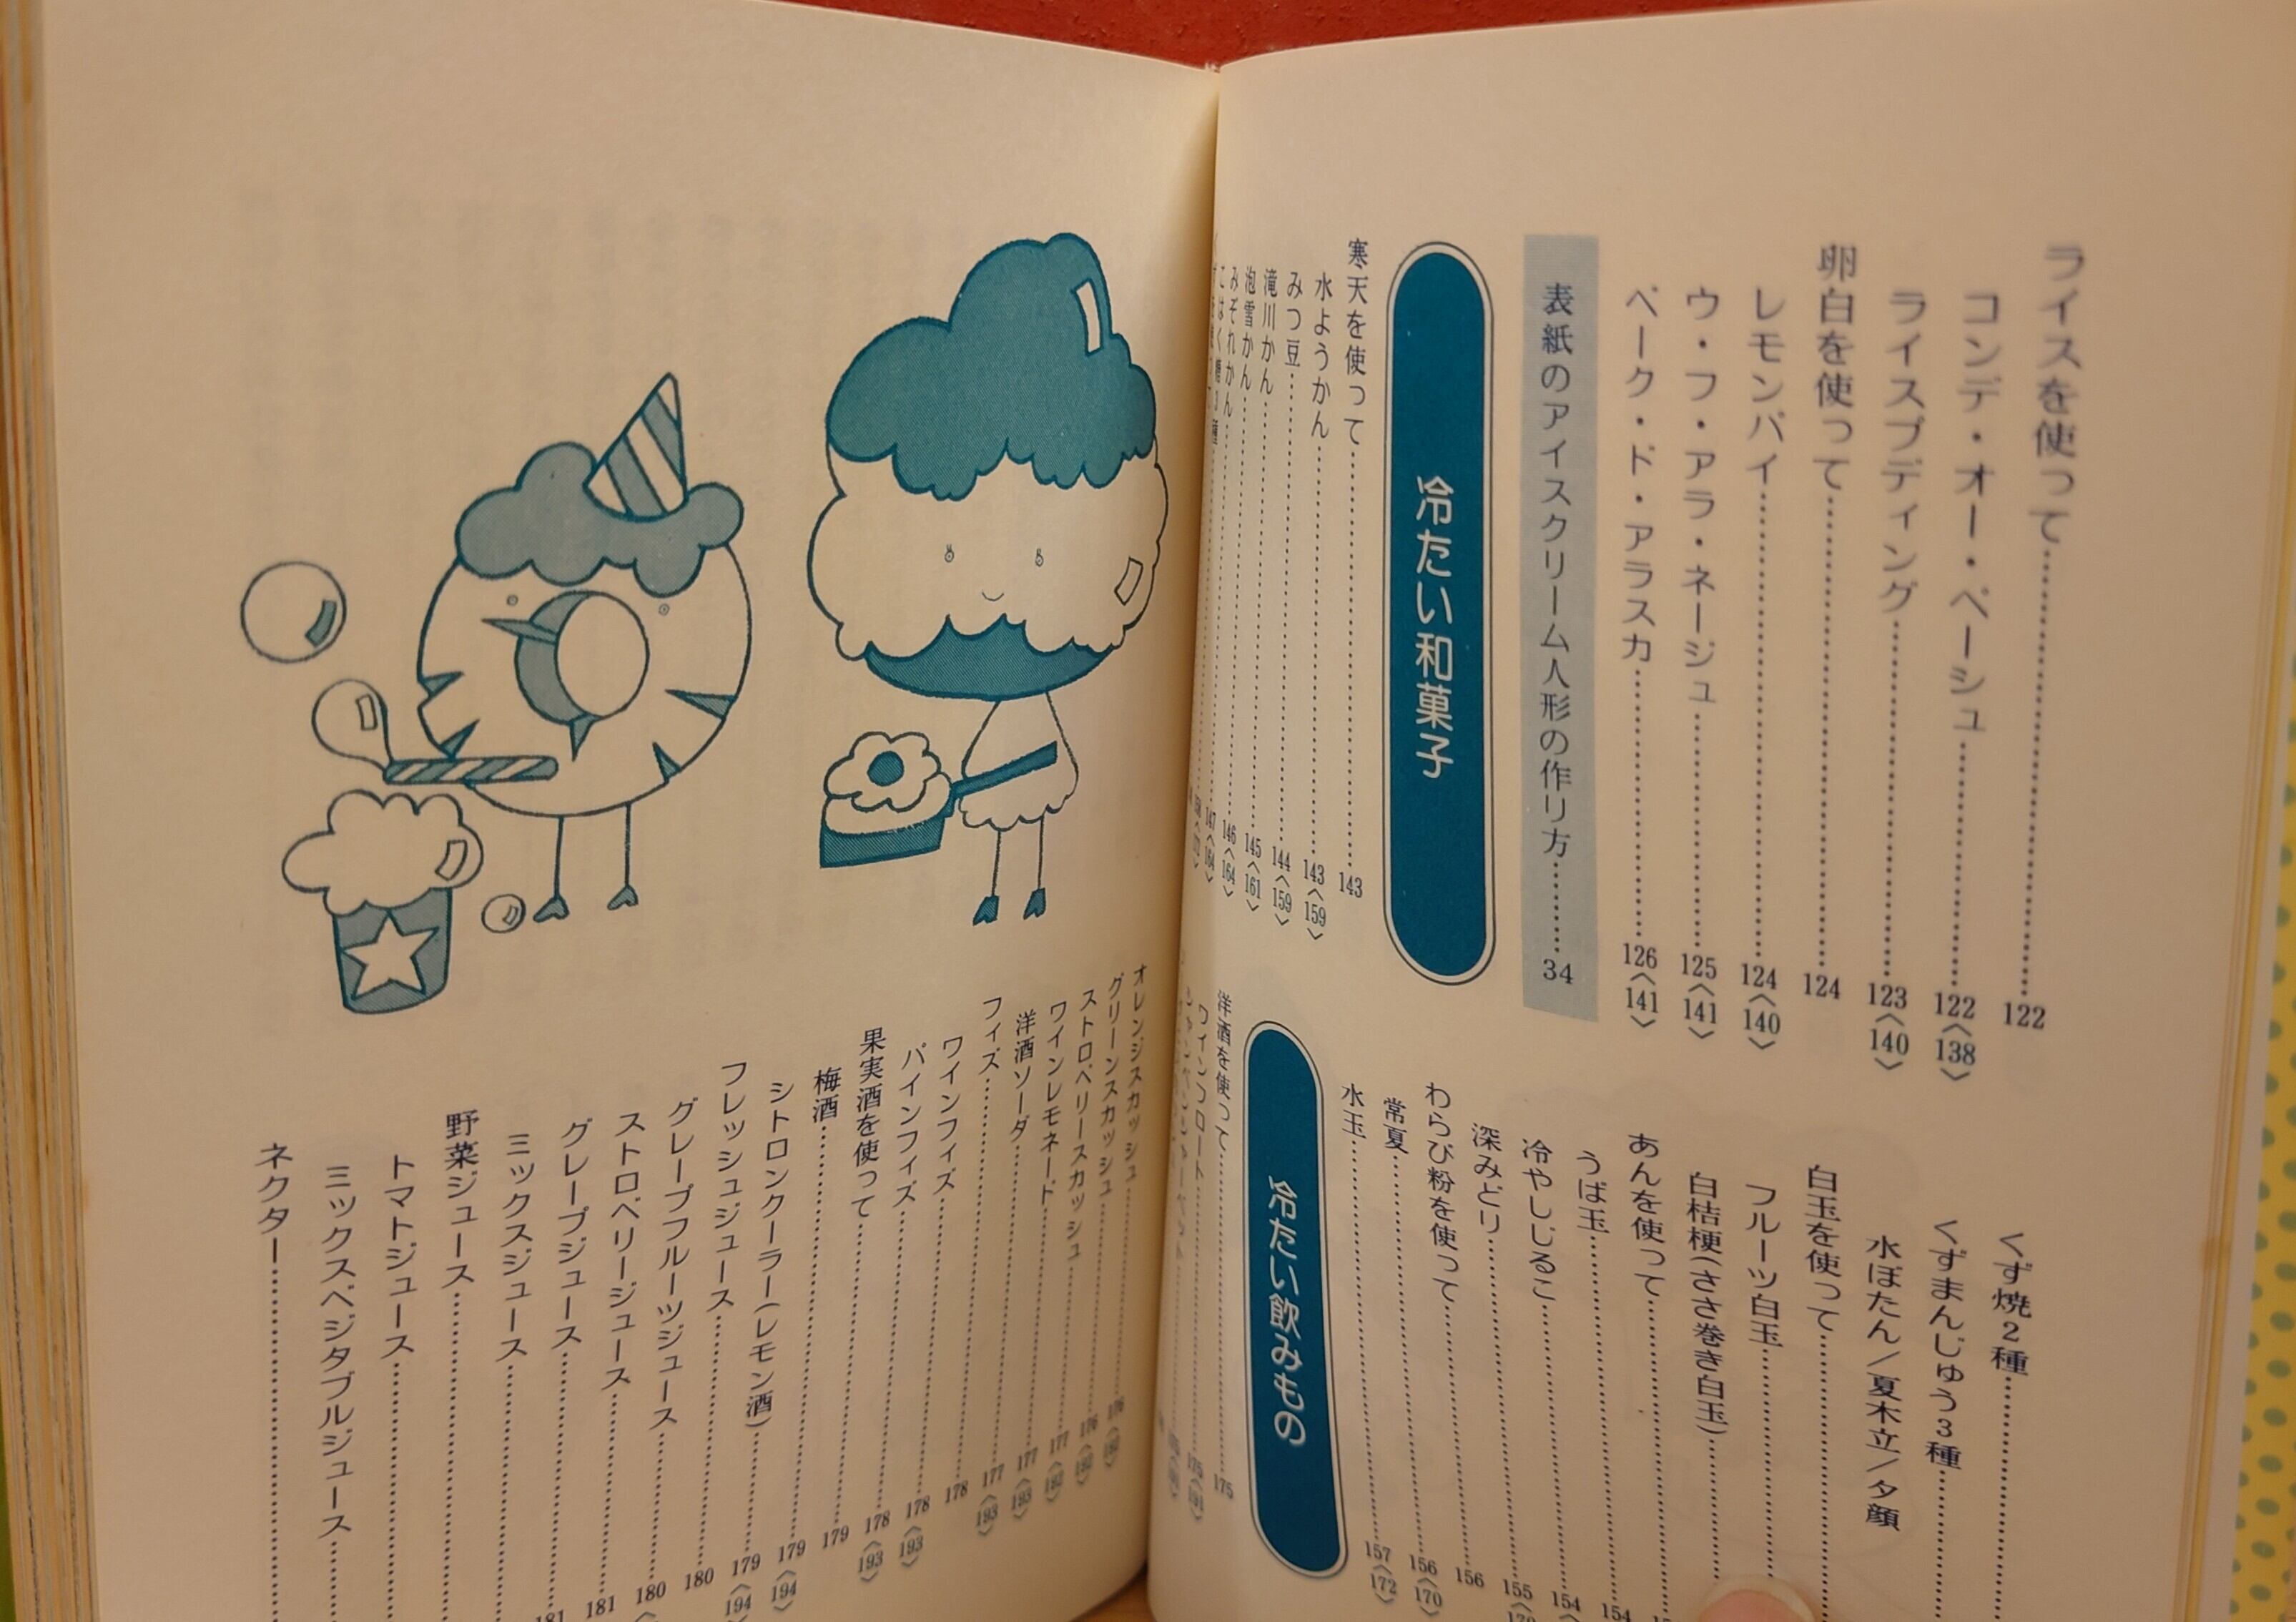 ライスを使って……122
コンデ・オー・ペーシュ……122〈138〉
ライスプディング……123〈140〉
卵白を使って……124
レモンパイ……124〈140〉
ウ・フ・アラ・ネージュ……125〈141〉
ベーク・ド・アラスカ……126〈141〉
表紙のアイスクリーム人形の作り方……34
冷たい和菓子
寒天を使って……143
水ようかん……143〈159〉
みつ豆……144〈159〉
滝川かん……145〈161〉
泡雪かん……146〈164〉
みぞれかん……147〈164〉
くず焼2種……
くずまんじゅう3種……
水ぼたん／夏木立／夕顔
白玉を使って……
フルーツ白玉……
白桔梗(ささ巻き白玉)……
あんを使って……
うば玉……154
冷やしじるこ……154
深みどり……155
わらび粉を使って……156
常夏……156〈170〉
水玉……157〈172〉
冷たい飲みもの
洋酒を使って……175
ワインフロート……175〈191〉
オレンジスカッシュ……176〈192〉
グリーンスカッシュ……176〈192〉
ストロベリースカッシュ……177
ワインレモネード……177〈193〉
洋酒ソーダ……177〈193〉
フィズ……178
ワインフィズ……178〈193〉
パインフィズ……178〈193〉
果実酒を使って……179
梅酒……179〈194〉
シトロンクーラー(レモン酒)……179〈194〉
フレッシュジュース……180
グレープフルーツジュース……180
ストロベリージュース……181
グレープジュース……181
ミックスジュース……
野菜ジュース……
トマトジュース……
ミックスベジタブルジュース……
ネクター……